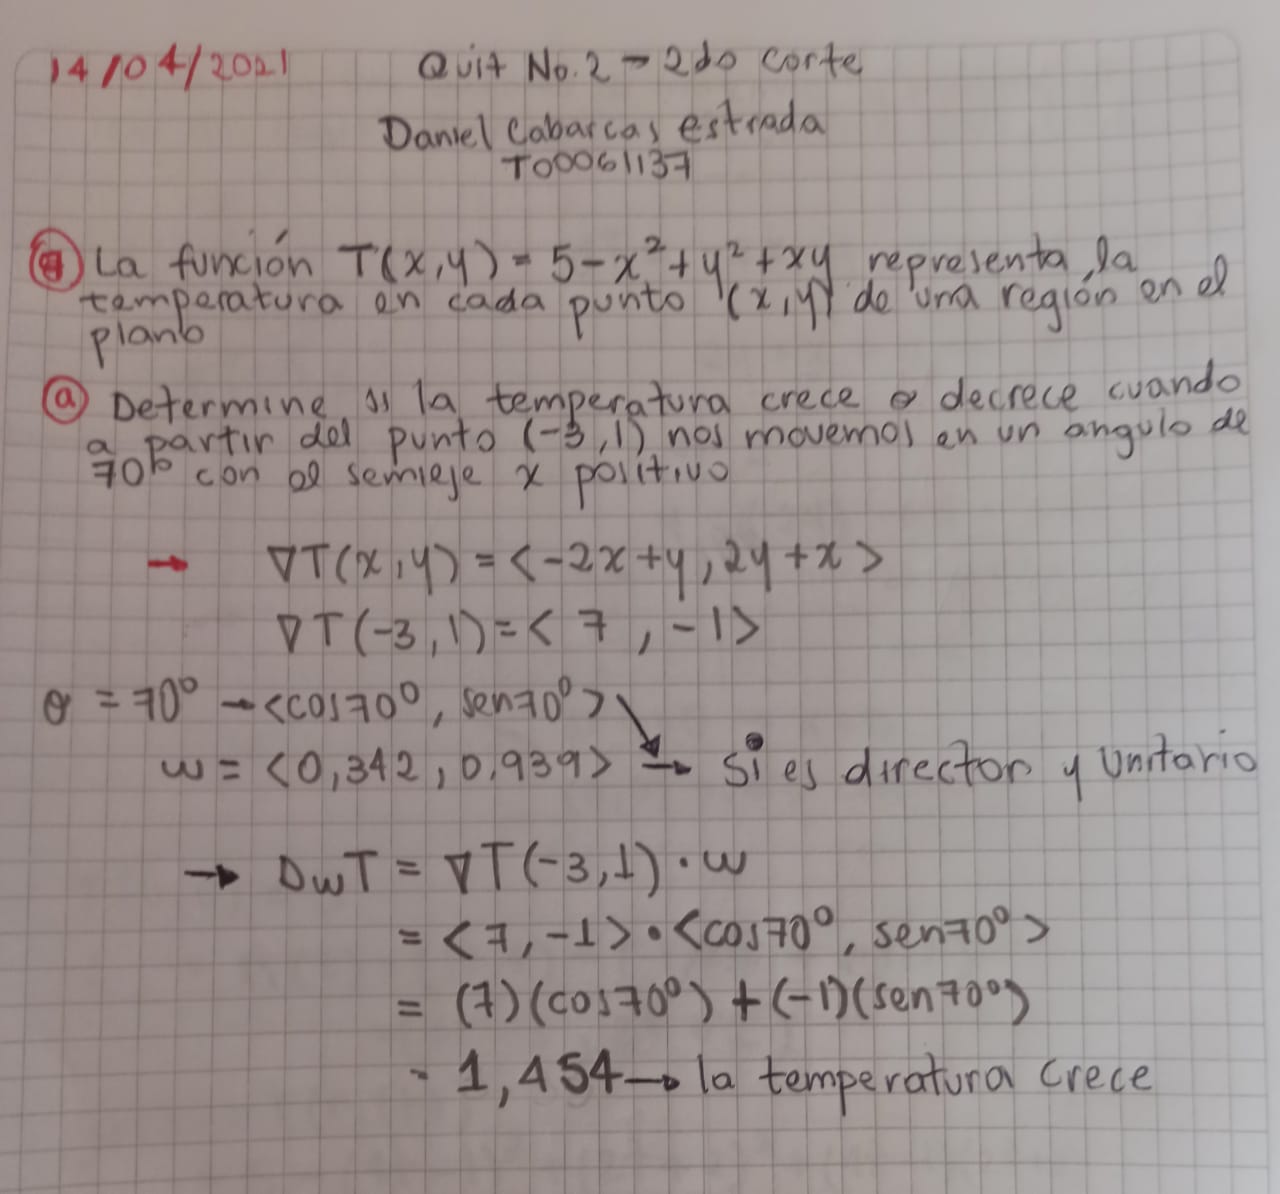 14/04/2021 Quiz No. 2 - 2do corte
Daniel Cabarcas estrada
T00061137
La función T(x,y) = 5-x²+y²+xy representa la
temperatura en cada punto (x,y) de una región en el
plano
a Determine si la temperatura crece o decrece cuando
a partir del punto (-3,1) nos movemos en un angulo de
70° con el semieje x positivo
→ ∇T(x,y) = <-2x+y, 2y+x>
∇T(-3,1) = <7, -1>
θ = 70° → <cos70°, sen70°>
w = <0,342, 0,939> → Si es director y Unitario
→ DwT = ∇T(-3,1)·w
= <7,-1>·<cos70°, sen70°>
= (7)(cos70°)+(-1)(sen70°)
- 1,454 → la temperatura crece